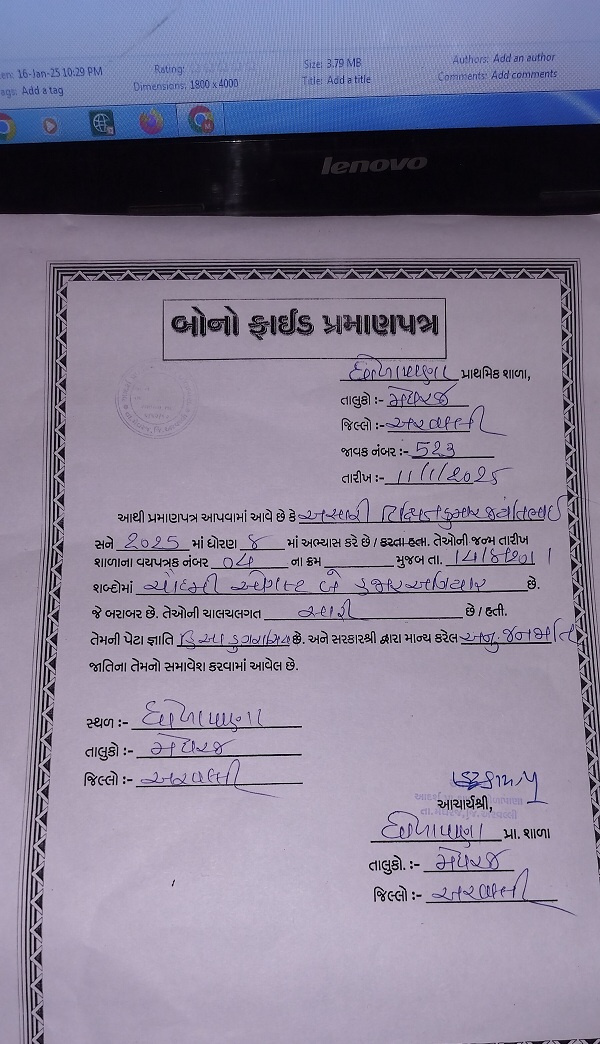 en: 16-Jan-25 10:29 PM Rating: Size: 3.79 MB Authors: Add an author
ags: Add a tag Dimensions: 1800 x 4000 Title: Add a title Comments: Add comments
lenovo
બોનો ફાઈડ પ્રમાણપત્ર
પ્રાથમિક શાળા,
તાલુકો :- મેઘરજ
જિલ્લો :- અરવલ્લી
જાવક નંબર :- 523
તારીખ :- 11/1/2025
આથી પ્રમાણપત્ર આપવામાં આવે છે કે અસારી
સને 2025 માં ધોરણ ૪ માં અભ્યાસ કરે છે / કરતા હતા. તેઓની જન્મ તારીખ
શાળાના વયપત્રક નંબર 04 ના ક્રમ મુજબ તા.
શબ્દોમાં ચૌદમી ઓગસ્ટ બે હજાર અગિયાર છે.
જે બરાબર છે. તેઓની ચાલચલગત સારી છે / હતી.
તેમની પેટા જ્ઞાતિ છે. અને સરકારશ્રી દ્વારા માન્ય કરેલ અનુ. જનજાતિ
જાતિના તેમનો સમાવેશ કરવામાં આવેલ છે.
સ્થળ :-
તાલુકો :- મેઘરજ
જિલ્લો :- અરવલ્લી
આચાર્યશ્રી,
પ્રા. શાળા
તાલુકો. :- મેઘરજ
જિલ્લો :- અરવલ્લી